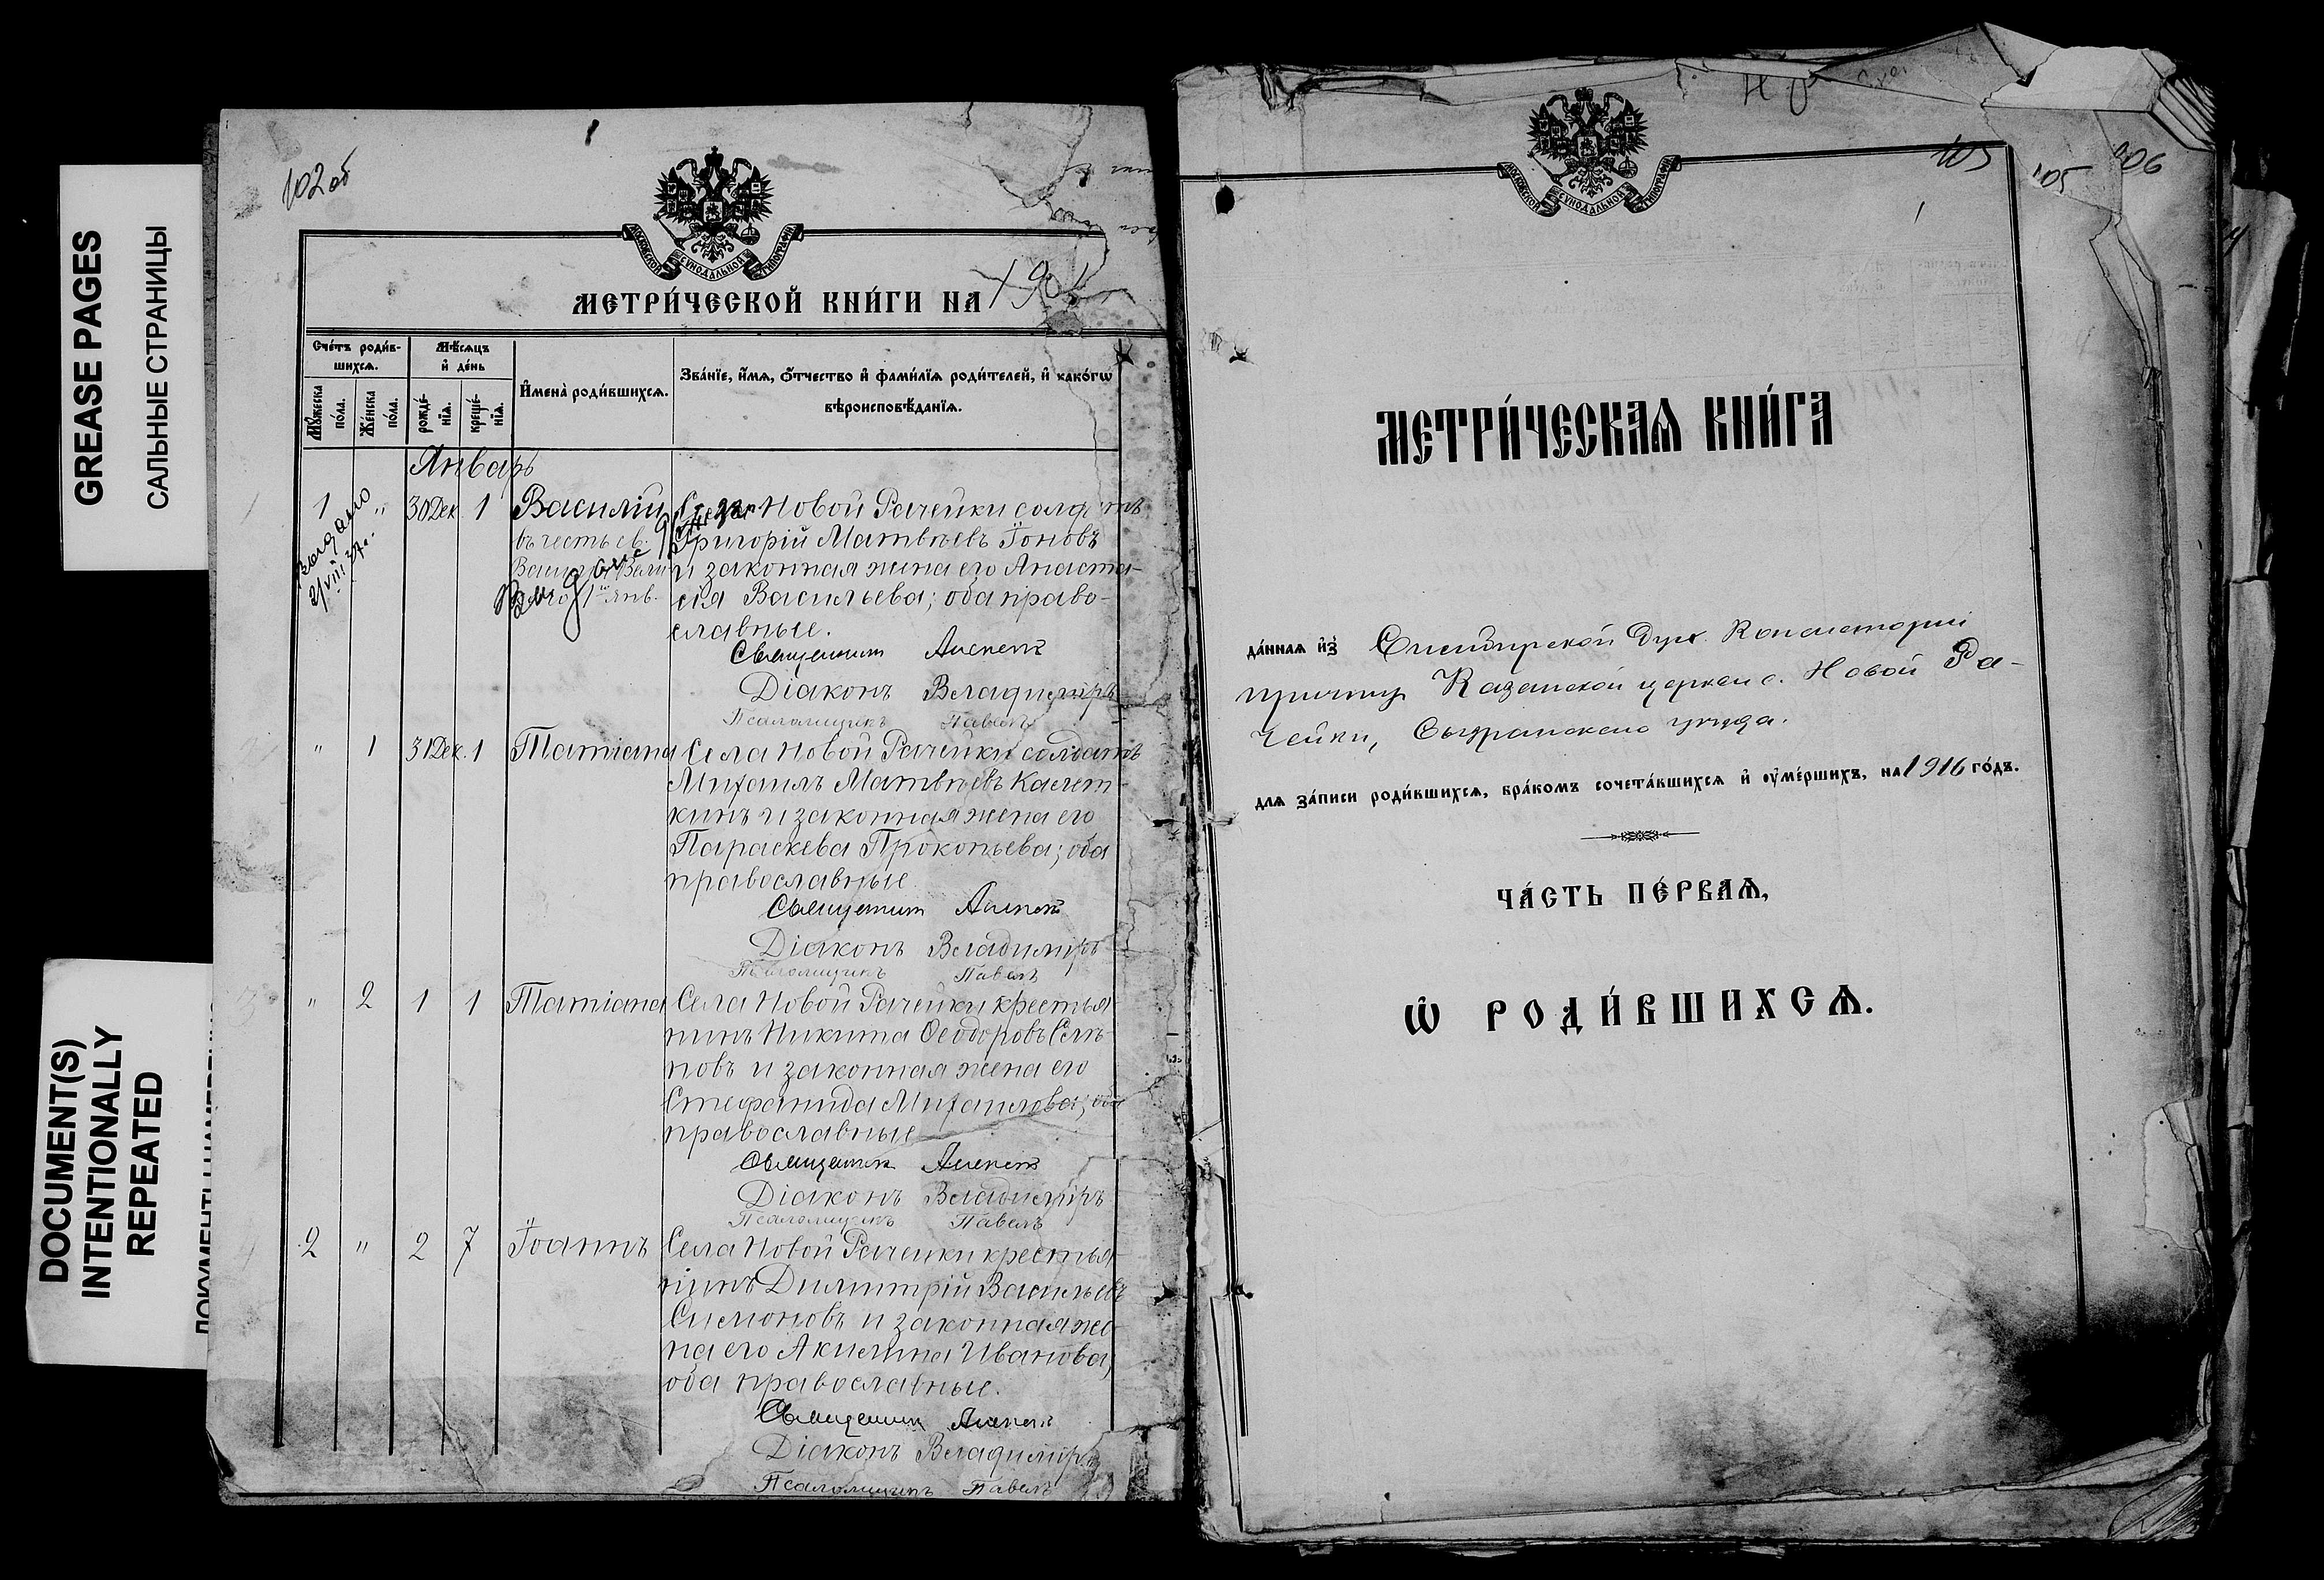 GREASE PAGES
САЛЬНЫЕ СТРАНИЦЫ
DOCUMENT(S)
INTENTIONALLY
REPEATED
102 об
МОСКОВСКОЙ СѴНОДАЛЬНОЙ ТИПОГРАФІИ
МЕТРИ́ЧЕСКОЙ КНИ́ГИ НА 190
Сче́тъ роди́в-
шихсѧ.
Мѣ́сѧцъ
и҆ де́нь
Мꙋ́жеска
по́ла.
Же́нска
по́ла.
рожде́-
нїѧ.
креще́-
нїѧ.
И҆мена̀ роди́вшихсѧ.
Зва́нїе, и҆́мѧ, ѻ҆́тчество и҆ фами́лїѧ роди́телей, и҆ како́гѡ
вѣроисповѣ́данїѧ.
Январь
1 1 " 30 Дек. 1 Василій Села Новой Рачейки солдатъ
въ честь св. Григорій Матвѣевъ Іоновъ
и законная жена его Анаста-
сія Васильева; оба право-
1 янв.
славные.
выдано
21/VIII 37 г.
Священник Алексей
Діаконъ Владиміръ
Псаломщикъ Павелъ
" 1 31 Дек. 1 Татіана Села Новой Рачейки солдатъ
Михаилъ Матвѣевъ Калет-
кинъ и законная жена его
Параскева Прокопьева; оба
православные.
Священник Алексей
Діаконъ Владиміръ
Псаломщикъ Павелъ
3 " 2 1 1 Татіана Села Новой Рачейки крестья-
нинъ Никита Ѳеодоровъ Семе-
новъ и законная жена его
Стефанида Михаилова; оба
православные
Священник Алексей
Діаконъ Владиміръ
Псаломщикъ Павелъ
4 2 " 2 7 Іоаннъ Села Новой Рачейки крестья-
нинъ Димитрій Васильевъ
Симоновъ и законная же-
на его Акилина Иванова;
оба православные.
Священник Алексей
Діаконъ Владиміръ
Псаломщикъ Павелъ
МОСКОВСКОЙ СѴНОДАЛЬНОЙ ТИПОГРАФІИ
103
105
106
МЕТРИ́ЧЕСКАѦ КНИ́ГА
да́ннаѧ и҆з̾ Симбирской Дух. Консисторіи
причту Казанской церкви с. Новой Ра-
чейки, Сызранскаго уѣзда.
длѧ за́писи роди́вшихсѧ, бра́комъ сочета́вшихсѧ и҆ ᲂу҆ме́ршихъ, на 1916 го́дъ.
ЧА́СТЬ ПЕ́РВАѦ,
Ѡ҆ РОДИ́ВШИХСѦ.